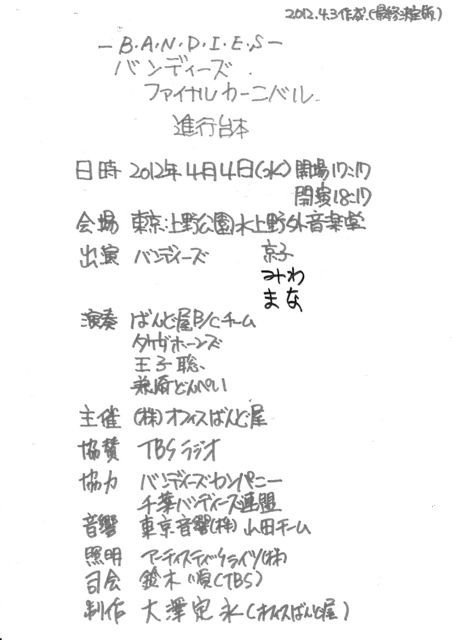 2012.4.3作成.(最終決定版)
-B.A.N.D.I.E.S-
バンディーズ
ファイナルカーニバル
進行台本
日時 2012年4月4日(水) 開場17:17
開演18:17
会場 東京:上野公園水上野外音楽堂
出演 バンディーズ 京子
みわ
まな
演奏 ばんど屋B/Cチーム
タケダホーンズ
王子聡
兼崎どんぺい
主催 (株)オフィスばんど屋
協賛 TBSラジオ
協力 バンディーズカンパニー
千葉バンディーズ連盟
音響 東京音響(株)山田チーム
照明 アーティスティックライツ(株)
司会 鈴木順(TBS)
制作 大澤定永(オフィスばんど屋)